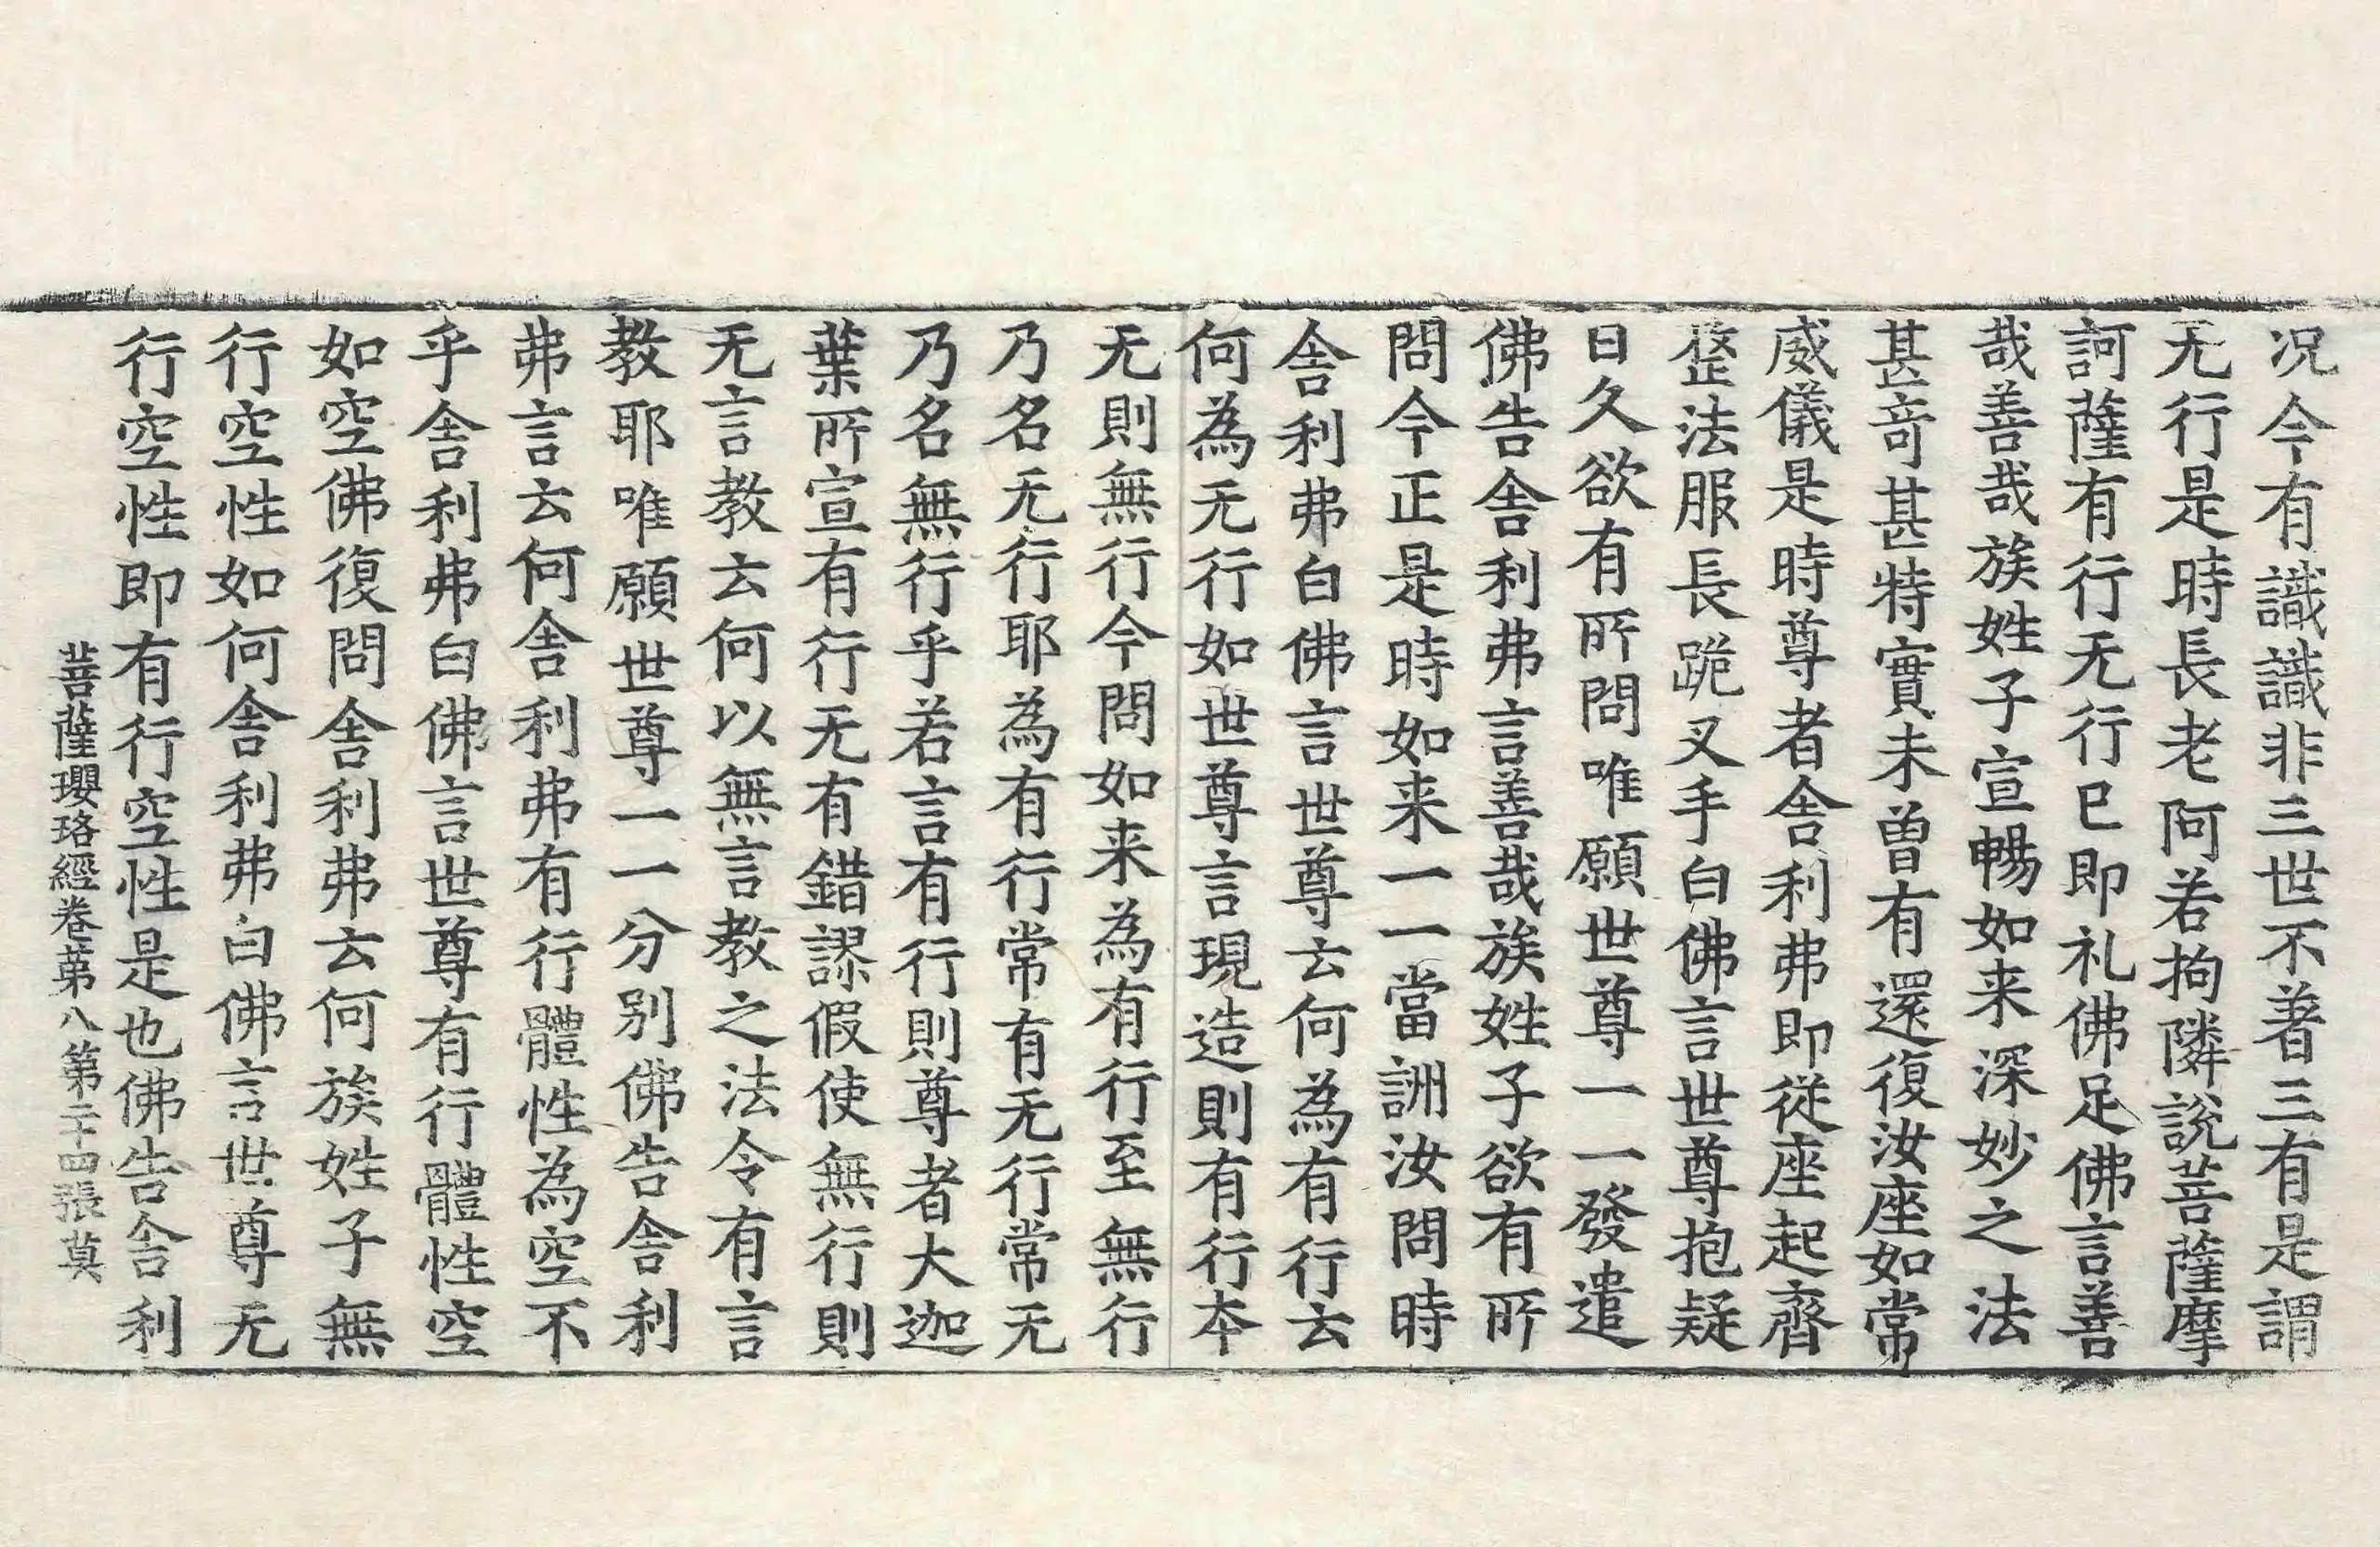 况今有識識非三世不著三有是謂
无行是時長老阿若拘隣說菩薩摩
訶薩有行无行已即礼佛足佛言善
哉善哉族姓子宣暢如来深妙之法
甚竒甚特實未曽有還復汝座如常
威儀是時尊者舎利弗即從座起齊
整法服長跪叉手白佛言世尊抱疑
日久欲有所問唯願世尊一一發遣
佛告舎利弗言善哉族姓子欲有所
問今正是時如来一一當詶汝問時
舎利弗白佛言世尊云何為有行云
何為无行如世尊言現造則有行本
无則無行今問如来為有行至無行
乃名无行耶為有行常有无行常无
乃名無行乎若言有行則尊者大迦
葉所宣有行无有錯謬假使無行則
无言教云何以無言教之法令有言
教耶唯願世尊一一分别佛告舎利
弗言云何舎利弗有行體性為空不
乎舎利弗白佛言世尊有行體性空
如空佛復問舎利弗云何族姓子無
行空性如何舎利弗白佛言世尊无
行空性即有行空性是也佛告舎利
菩薩瓔珞經卷苐八第二十四張莫